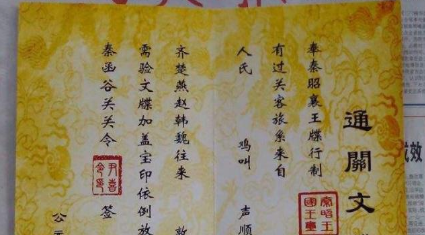 通關文
奉秦昭襄王牒行制
有过关客旅系来自
人民 鸡叫 声順
齐楚燕赵韩魏往来
需验文牒加盖宝印依倒放
秦函谷关关令
签
公元
效